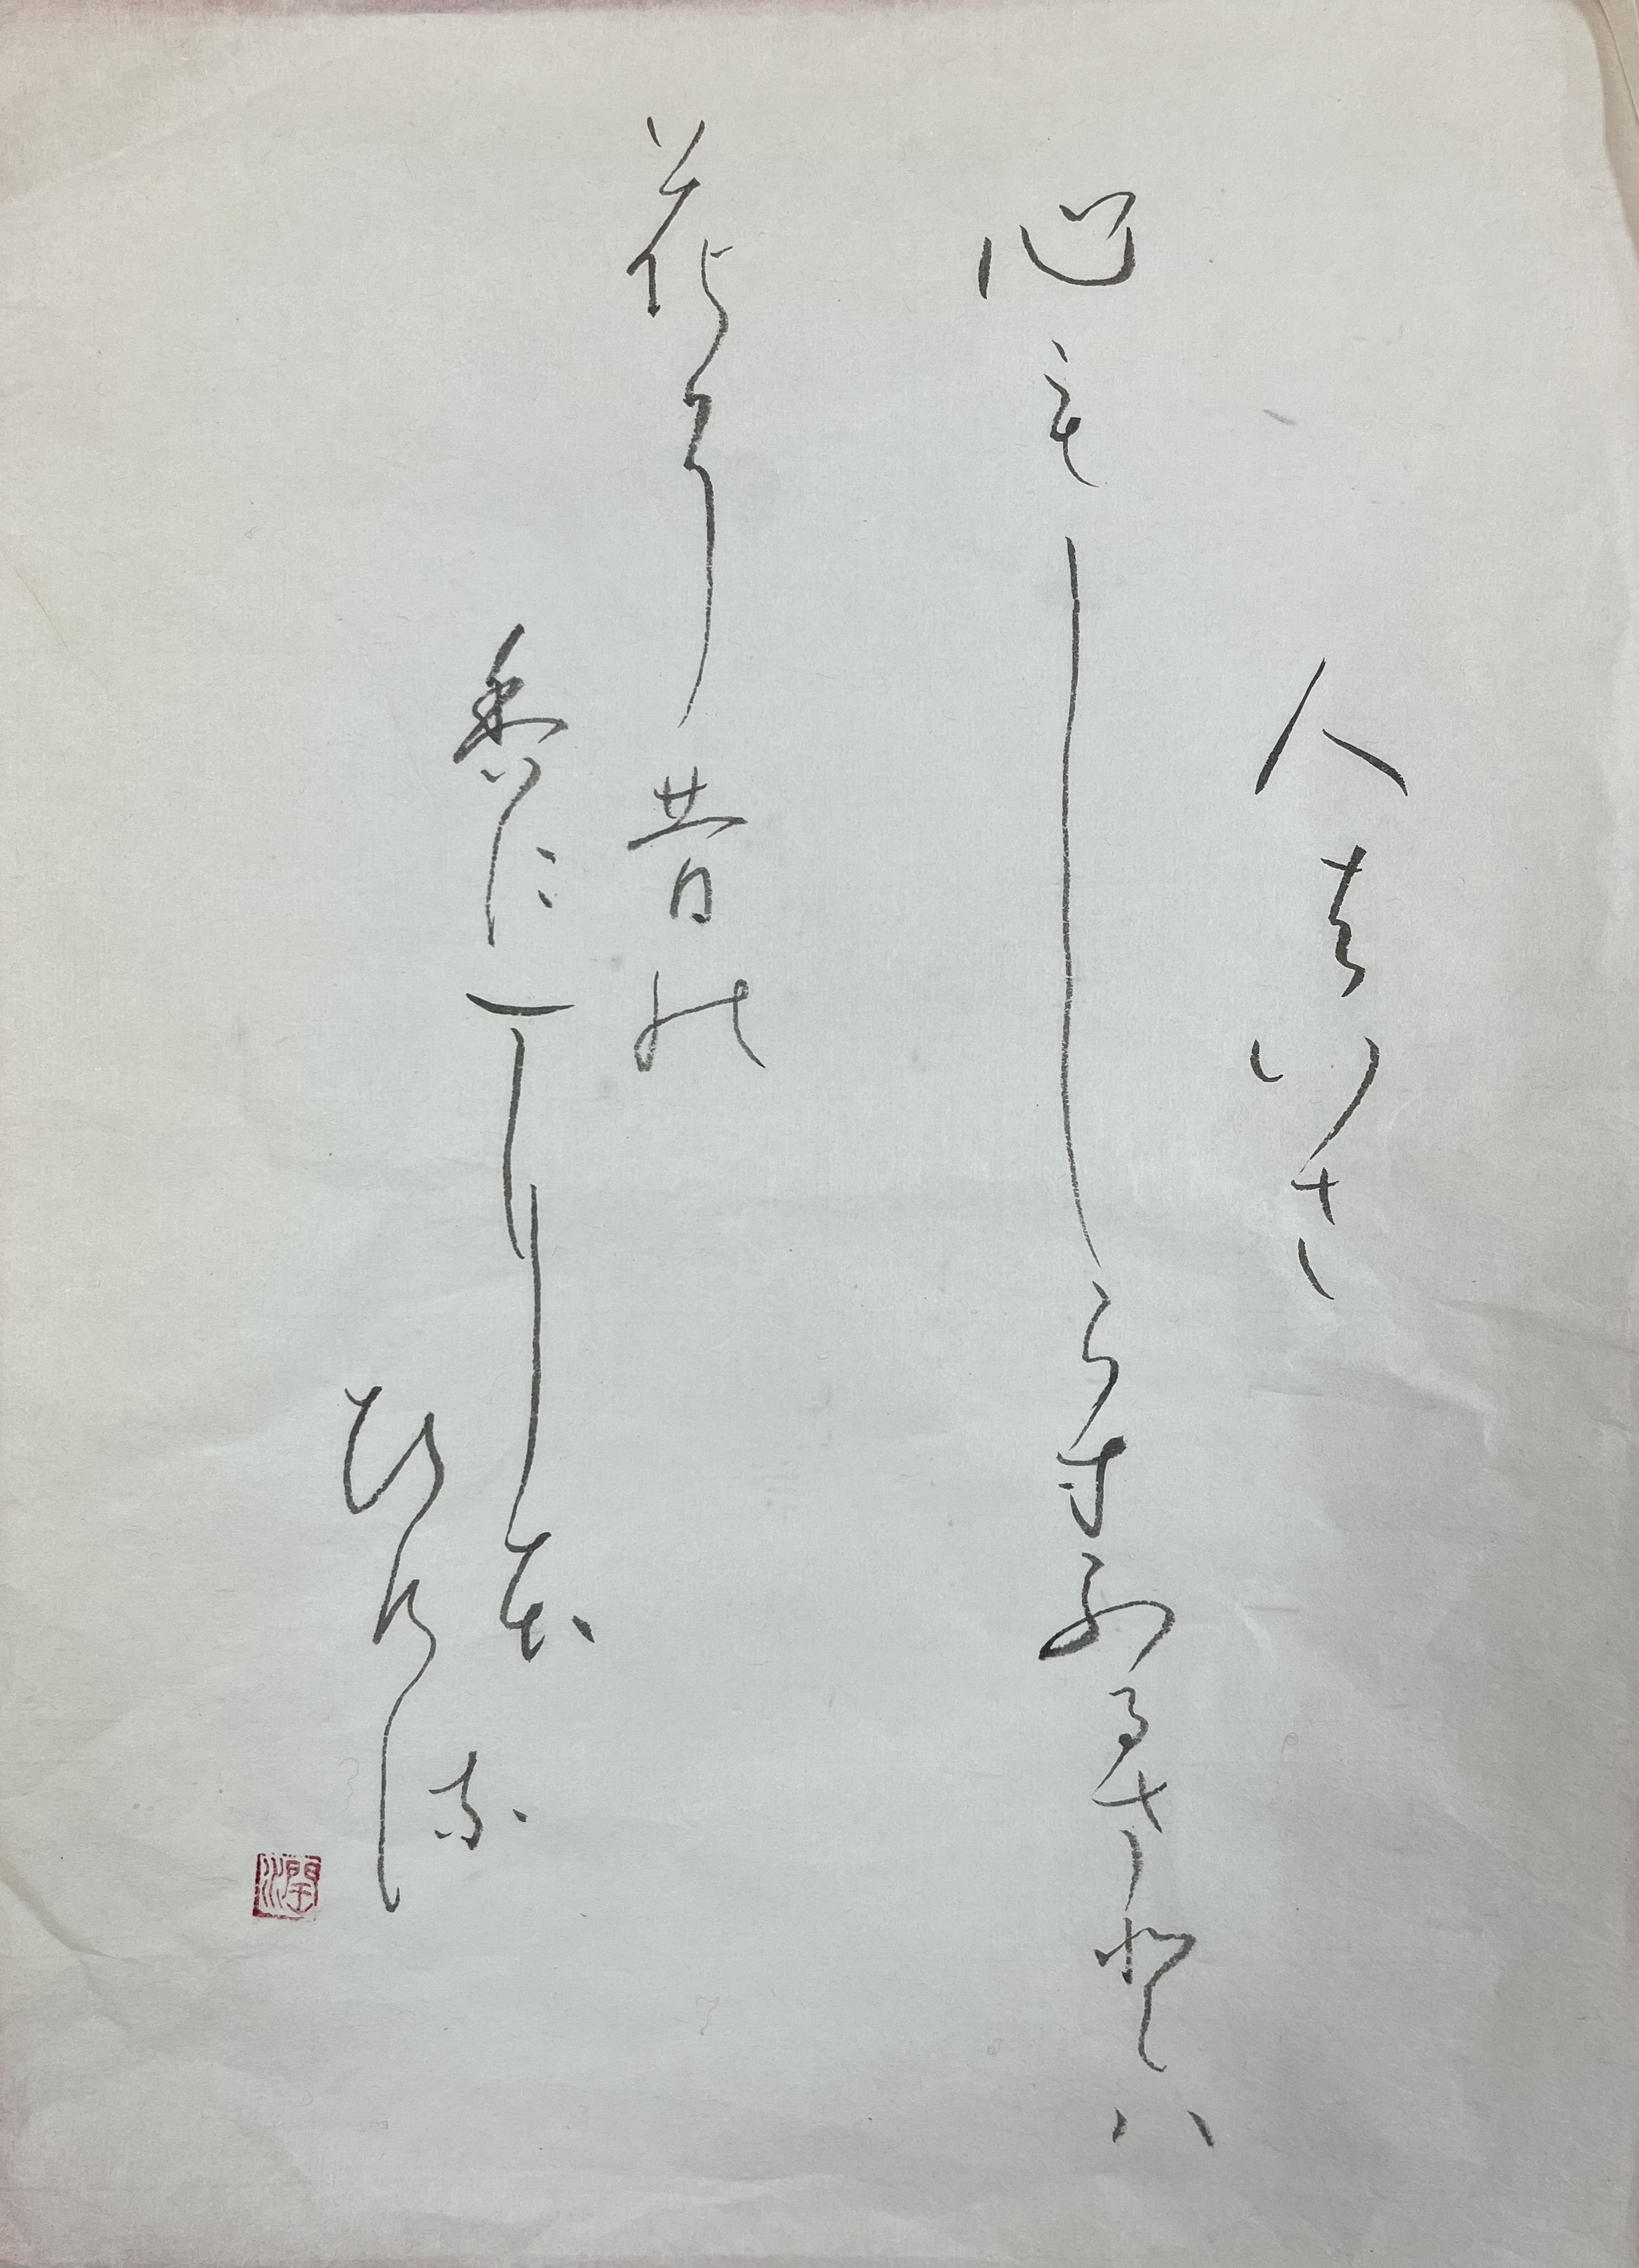 人はいさ
心もしらすふるさとハ
花そ昔の
香ににほ
ひける
潤